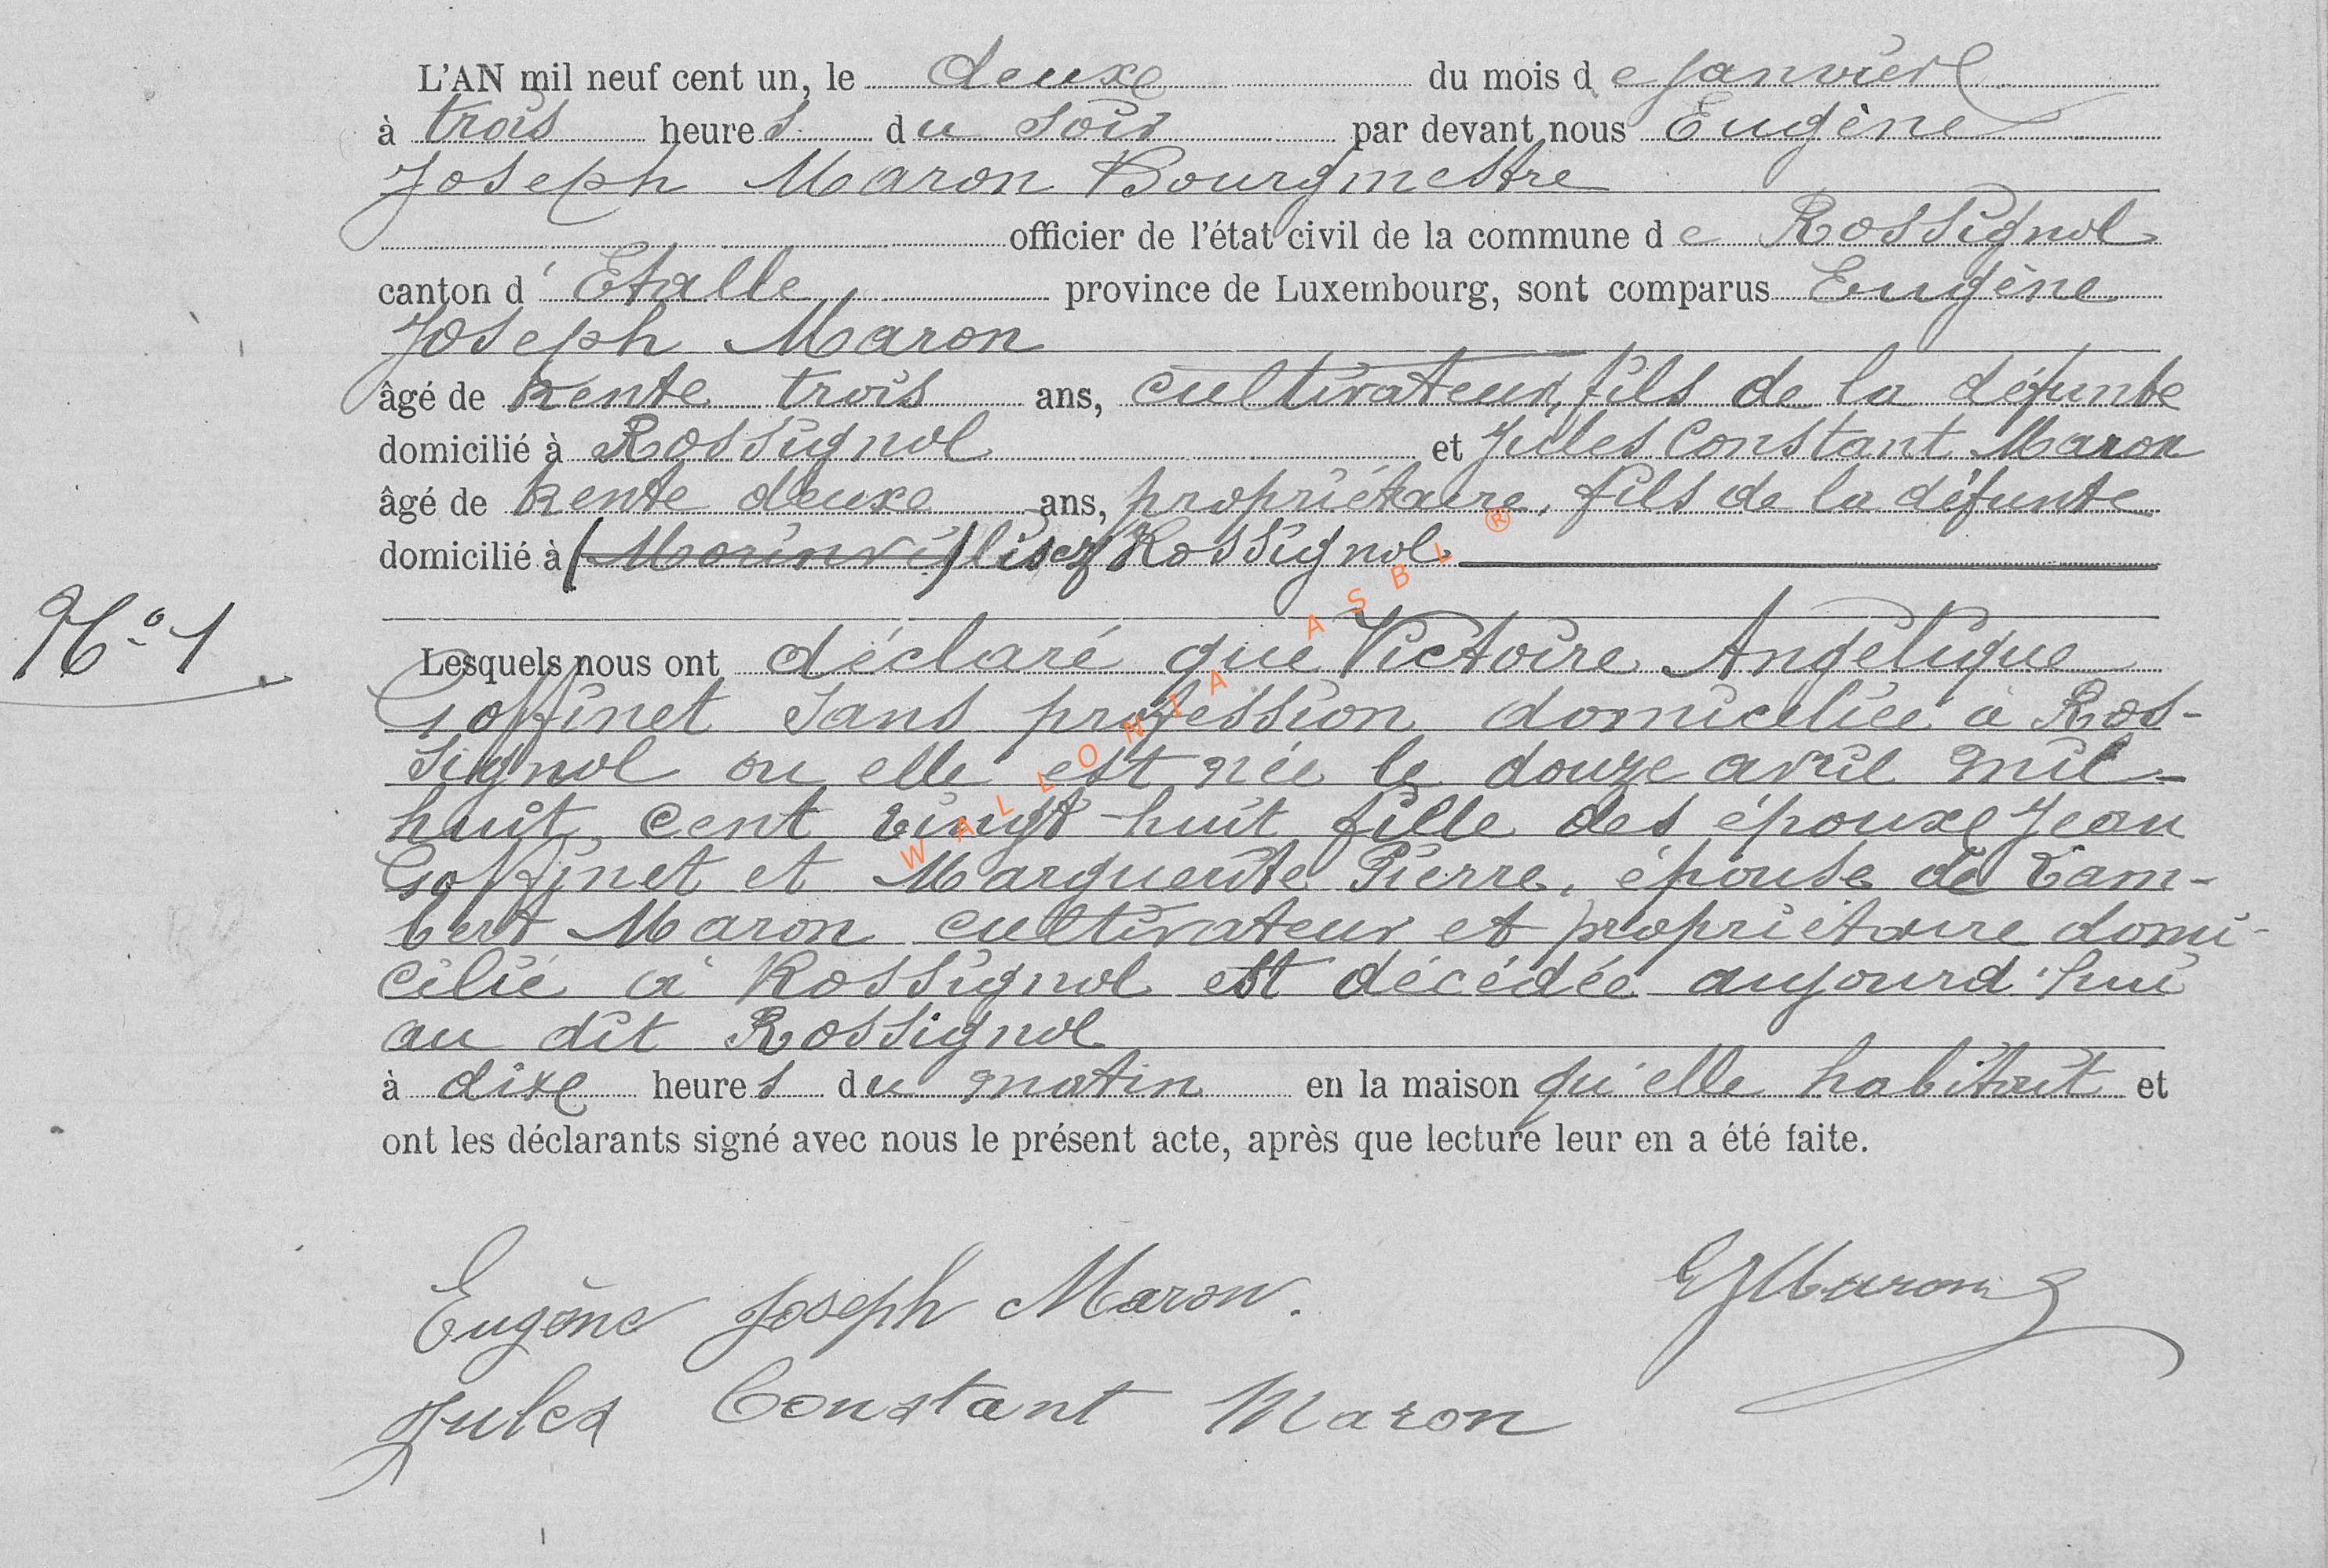 L'AN mil neuf cent un, le deux du mois de Janvier
à trois heures du soir par devant nous Eugène
Joseph Maron Bourgmestre
officier de l'état civil de la commune de Rossignol
canton d'Etalle province de Luxembourg, sont comparus Eugène
Joseph Maron
âgé de trente trois ans, cultivateur, fils de la défunte
domicilié à Rossignol et Jules Constant Maron
âgé de trente deux ans, propriétaire, fils de la défunte
domicilié à lisez Rossignol
N° 1
Lesquels nous ont déclaré que Victoire Angélique
Goffinet sans profession domiciliée à Ros-
signol ou elle est née le douze avril mil
huit cent vingt-huit fille des époux Jean
Goffinet et Marguerite Pierre, épouse de Lam-
bert Maron cultivateur et propriétaire domi-
cilié à Rossignol est décédée aujourd'hui
au dit Rossignol
à dix heures du matin en la maison qu'elle habitait et
ont les déclarants signé avec nous le présent acte, après que lecture leur en a été faite.
Eugène Joseph Maron. EJMaron
Jules Constant Maron
WALLONIA ASBL ®